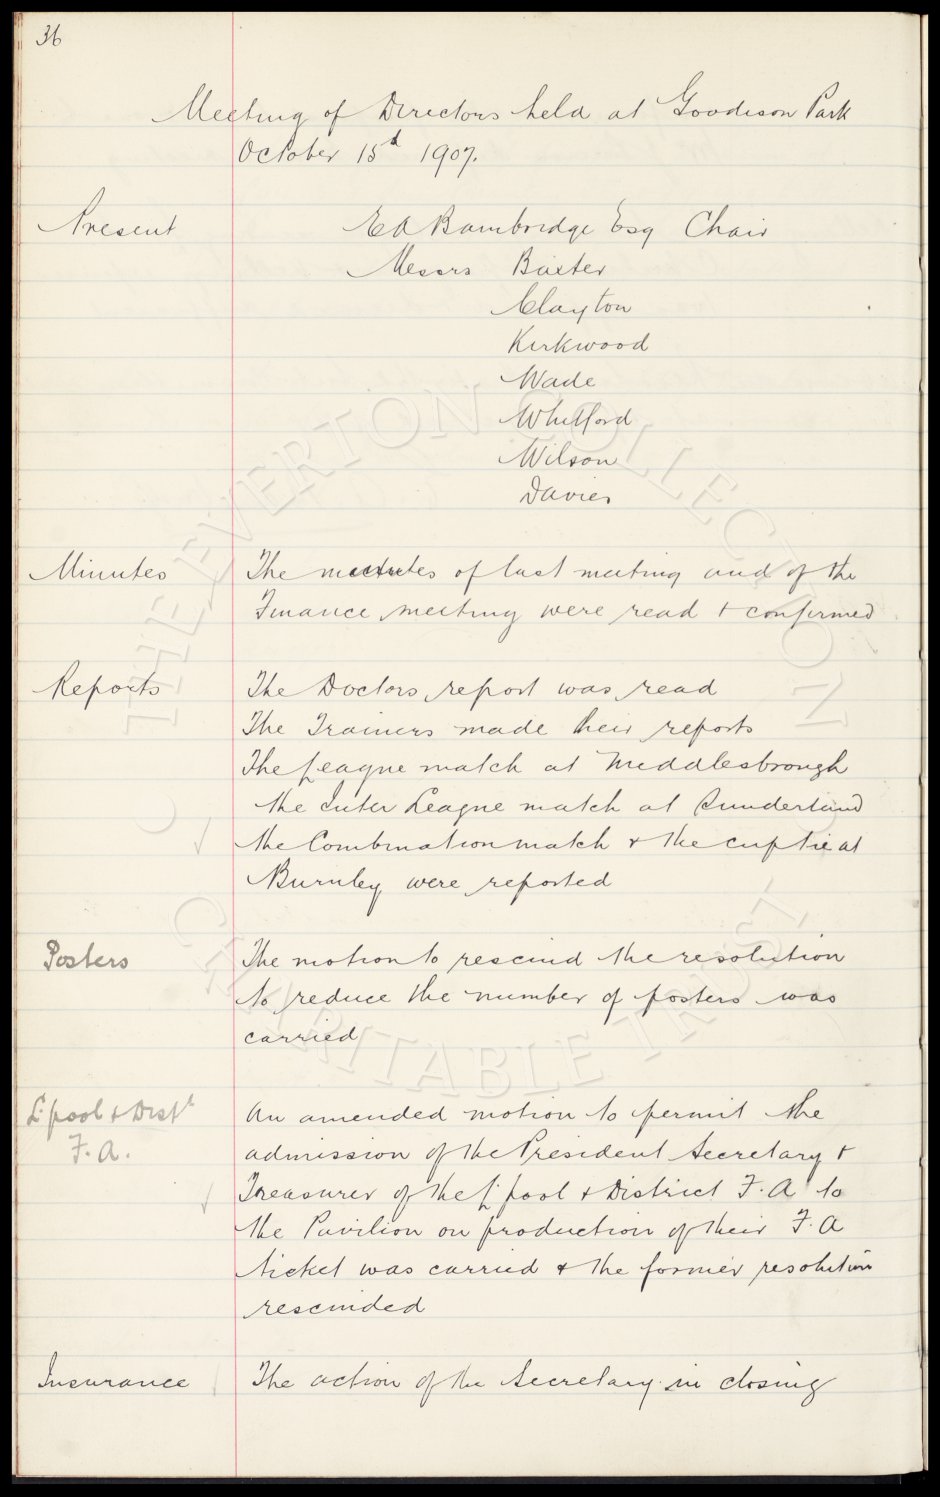 36
Meeting of Directors held at Goodison Park
October 15th 1907.
Present
E A Bainbridge Esq Chair
Messrs Baxter
Clayton
Kirkwood
Wade
Whitford
Wilson
Davies
Minutes The minutes of last meeting and of the
Finance meeting were read & confirmed
Reports The Doctors report was read
The Trainers made their reports
The League match at Middlesbrough
the Inter League match at Sunderland
the Combination match & the cup tie at
Burnley were reported
Posters The motion to rescind the resolution
to reduce the number of posters was
carried
L'pool & Dist An amended motion to permit the
F. A. admission of the President Secretary &
Treasurer of the L'pool & District F. A to
the Pavilion on production of their F. A
ticket was carried & the former resolution
rescinded
Insurance The action of the Secretary in closing
THE EVERTON COLLECTION
CHARITABLE TRUST